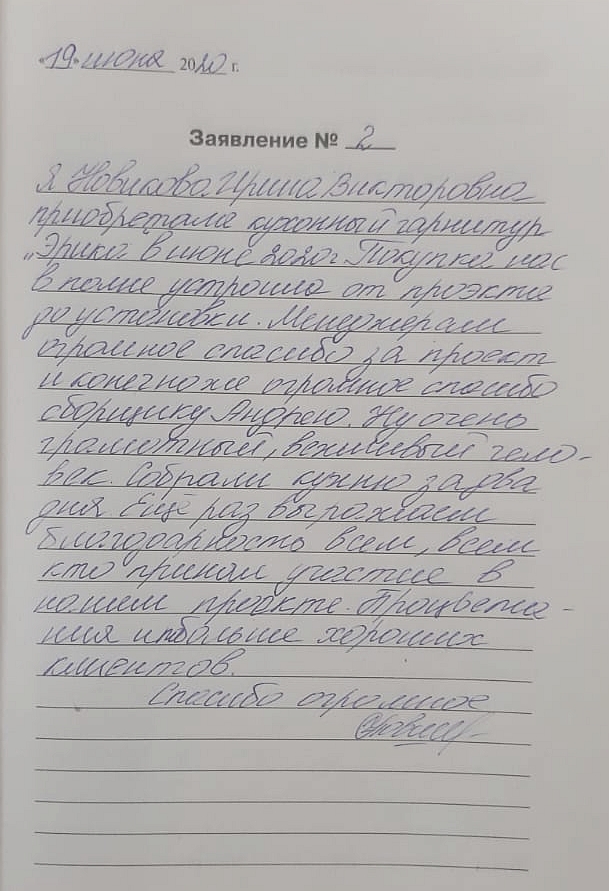 «19» июня 2020 г.
Заявление № 2
Я Новикова Ирина Викторовна
приобретала кухонный гарнитур
„Эрика" в июне 2020г Покупка нас
вполне устроила от проэкта
до установки. Менеджерам
огромное спасибо за проект
и конечно же огромное спасибо
сборщику Андрею. Ну очень
грамотный, вежливый чело-
век. Собрали кухню за два
дня. Ещё раз выражаем
благодарность всем, всем
кто принял участие в
нашем проэкте. Процвета-
ния и побольше хороших
клиентов.
Спасибо огромное